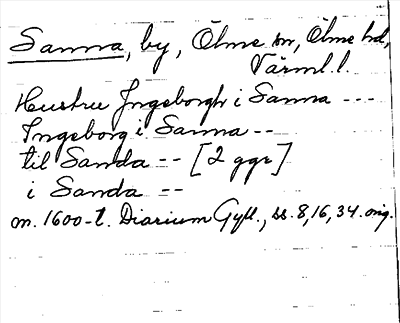 Sanna, by, Ölme sn, Ölme hd,
Värml. l.
Hustru Jngeborgh i Sanna ---
Jngeborg i Sanna --
til Sanda -- [2 ggr]
i Sanda --
m. 1600-t. Diarium Gyll., ss. 8, 16, 34. orig.